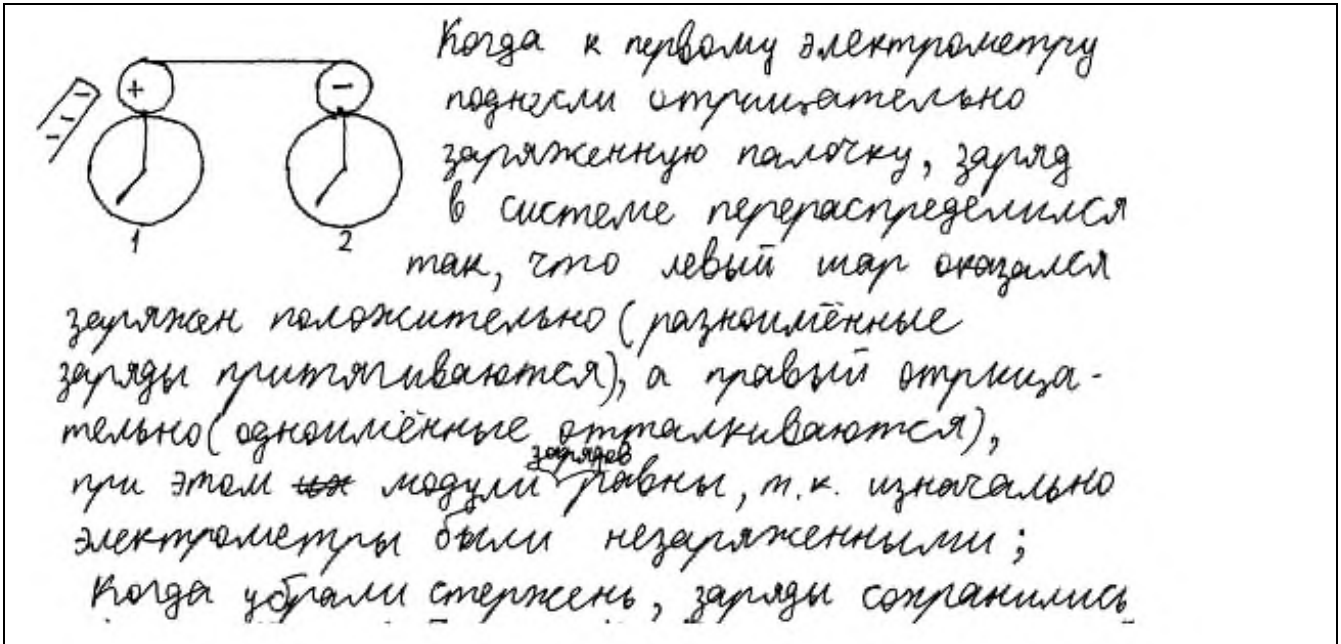 Когда к первому электрометру
поднесли отрицательно
заряженную палочку, заряд
в системе перераспределился
так, что левый шар оказался
заряжен положительно (разноимённые
заряды притягиваются), а правый отрица-
тельно (одноимённые отталкиваются),
при этом их модули зарядов равны, т.к. изначально
электрометры были незаряженными;
Когда убрали стержень, заряды сохранились
+
-
- - -
1
2